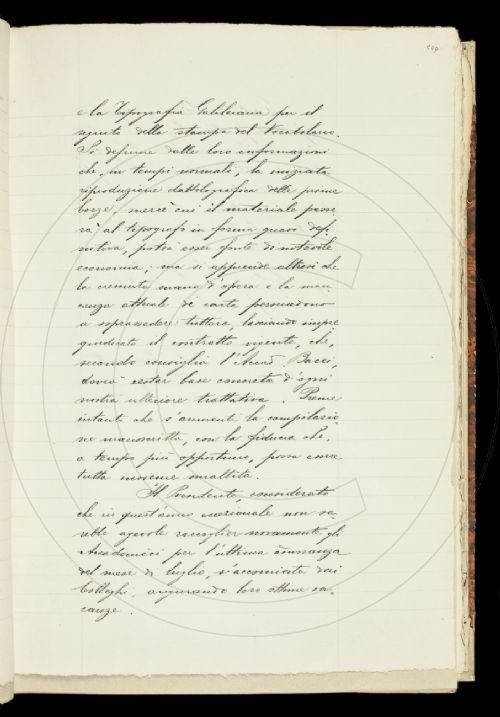 e la Tipografia Galileiana per il
seguito della stampa del Vocabolario.
Si desume dalle loro informazioni
che, in tempi normali, la migrata
riproduzione dattilografica delle prime
bozze, mercè cui il materiale passe
rà al tipografo in forma quasi defi
nitiva, potrà esser fonte di notevole
economia; ma si apprende altresì che
la cresciuta mano d'opera e la man
canza attuale di carta persuadono
a soprassedere tuttora, lasciando impre
giudicato il contratto vigente, che,
secondo consiglia l'Accad. Bacci,
dovrà restar base concreta d'ogni
nostra ulteriore trattativa. Preme
intanto che s'aumenti la compilazio
ne manoscritta, con la fiducia che,
a tempo più opportuno, possa essere
tutta insieme smaltita.
Il Presidente, considerato
che in quest'anno eccezionale non sa
rebbe agevole raccoglier nuovamente gli
Accademici per l'ultima adunanza
del mese di luglio, s'accomiata dai
Colleghi, augurando loro ottime va
canze.